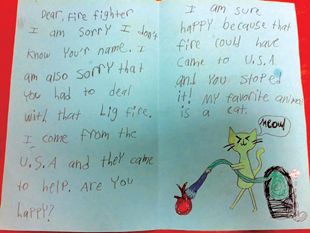 Dear, fire fighter
I am SorrY I don't
know Your name. I
am also SorrY that
You had to deal
with that big fire.
I come from the
U.S.A and they came
to help. Are You
happy?
I am sure
haPPY because that
fire could have
came to U.S.A
and You stoped
it! MY favorite animal
is a cat.
meow!